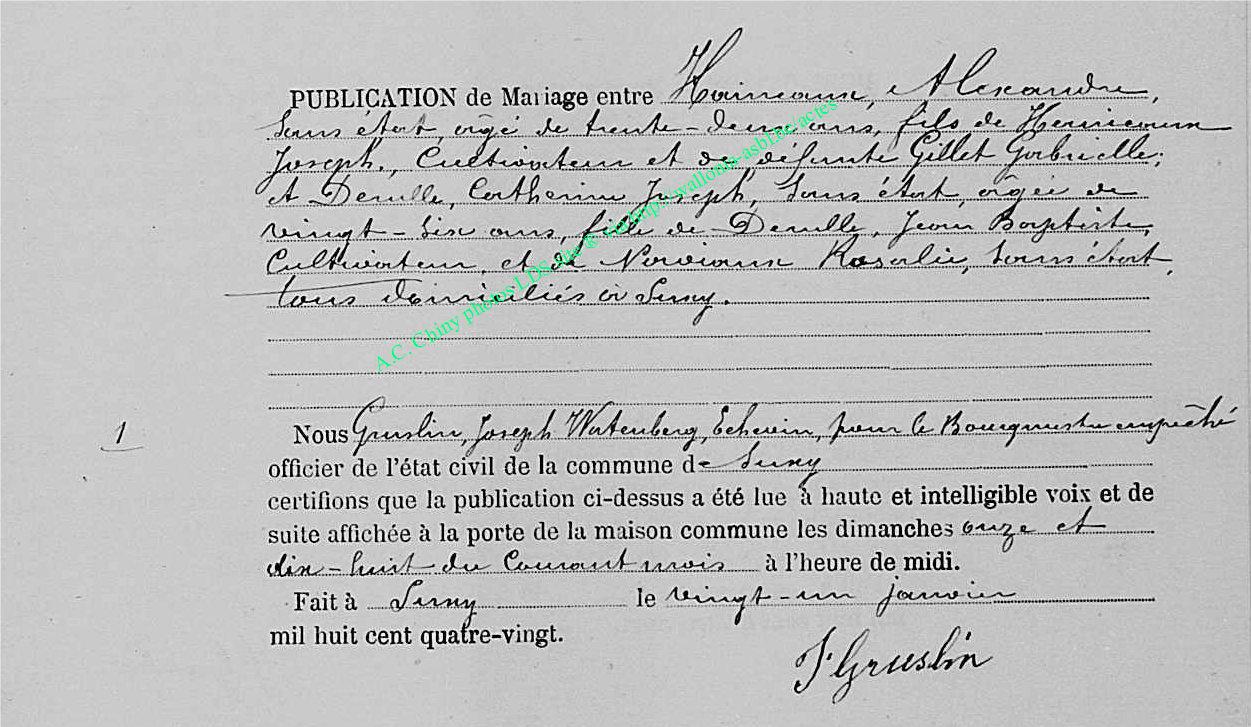 PUBLICATION de Mariage entre Hainiaux, Alexandre,
sans état, âgé de trente-deux ans, fils de
Joseph, Cultivateur et de défunte Gillet Gabrielle;
et Derulle, Catherine Joseph, sans état, âgée de
vingt-six ans, fille de Derulle, Jean Baptiste,
Cultivateur, et de Noviaux Rosalie, sans état,
tous domiciliés à Suxy.
1
Nous Gruslin, Joseph Wutenberg, Echevin, pour le Bourgmestre empêché
officier de l'état civil de la commune de Suxy
certifions que la publication ci-dessus a été lue à haute et intelligible voix et de
suite affichée à la porte de la maison commune les dimanches onze et
dix-huit du Courant mois à l'heure de midi.
Fait à Suxy le vingt-un janvier
mil huit cent quatre-vingt.
J Gruslin
A.C. Chiny photos LDS http://wallonia-asbl.be/actes